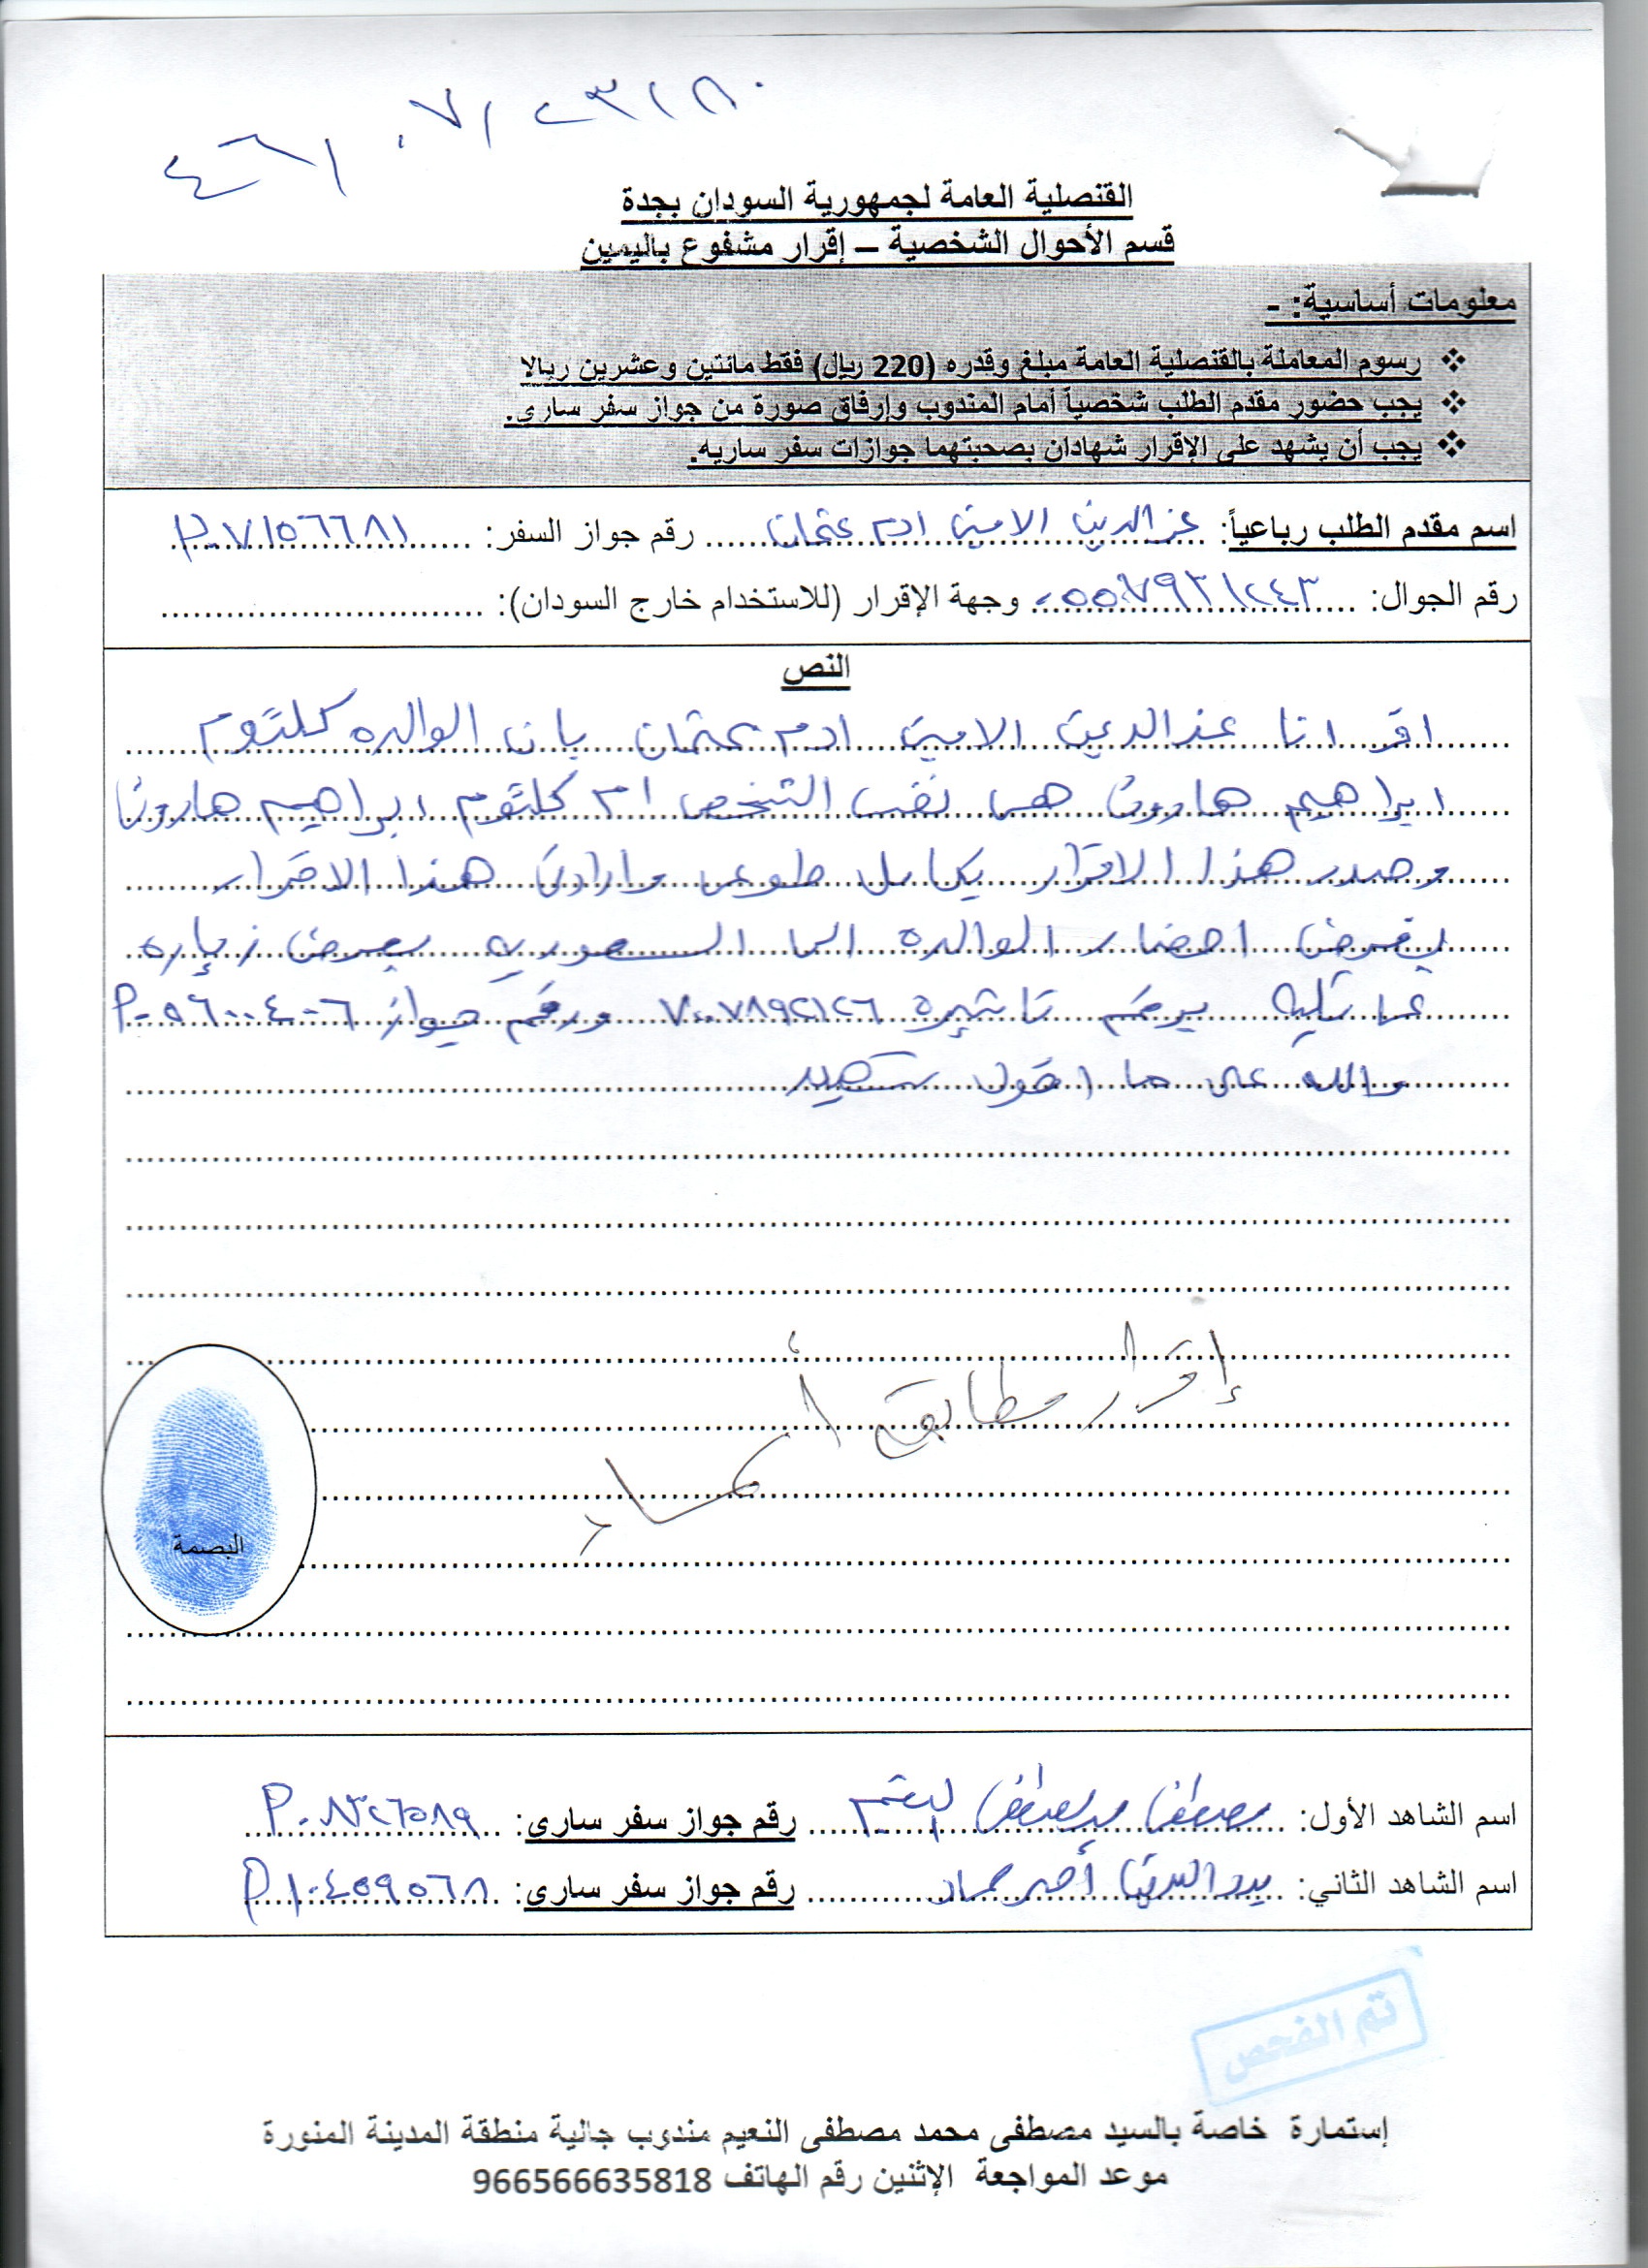 ٤٦١٠٧١٢٣١٨٠
القنصلية العامة لجمهورية السودان بجدة
قسم الأحوال الشخصية – إقرار مشفوع باليمين
معلومات أساسية: -
❖ رسوم المعاملة بالقنصلية العامة مبلغ وقدره (220 ريال) فقط مائتين وعشرين ريالا
❖ يجب حضور مقدم الطلب شخصياً أمام المندوب وإرفاق صورة من جواز سفر ساري.
❖ يجب أن يشهد على الإقرار شهادان بصحبتهما جوازات سفر ساريه.
اسم مقدم الطلب رباعياً: عز الدين الامين ادم عثمان رقم جواز السفر: P٠٧١٥٦٦٨١
رقم الجوال: ٠٥٥٧٩٣١٢٤٣ وجهة الإقرار (للاستخدام خارج السودان):
النص
اقر انا عز الدين الامين ادم عثمان بان الوالده كلثوم
ابراهيم هارون هي نفس الشخص ام كلثوم ابراهيم هارون
وصدر هذا الاقرار بكامل طوعي وارادتي هذا الاقرار
بغرض احضار الوالده الى السعوديه بغرض زياره
عائليه برقم تاشيره ٧٠٠٧٨٩٢١٢٦ ورقم جواز P٠٩٦٠٠٤٠٦
والله على ما اقول شهيد
إقرار مطابق
البصمة
اسم الشاهد الأول: مصطفى محمد مصطفى النعيم رقم جواز سفر ساري: P٠٨٣٢٦٥٨٩
اسم الشاهد الثاني: بدر الدين رقم جواز سفر ساري: P١٠٤٥٩٥٦٨
تم الفحص
إستمارة خاصة بالسيد مصطفى محمد مصطفى النعيم مندوب جالية منطقة المدينة المنورة
موعد المواجعة الإثنين رقم الهاتف 966566635818